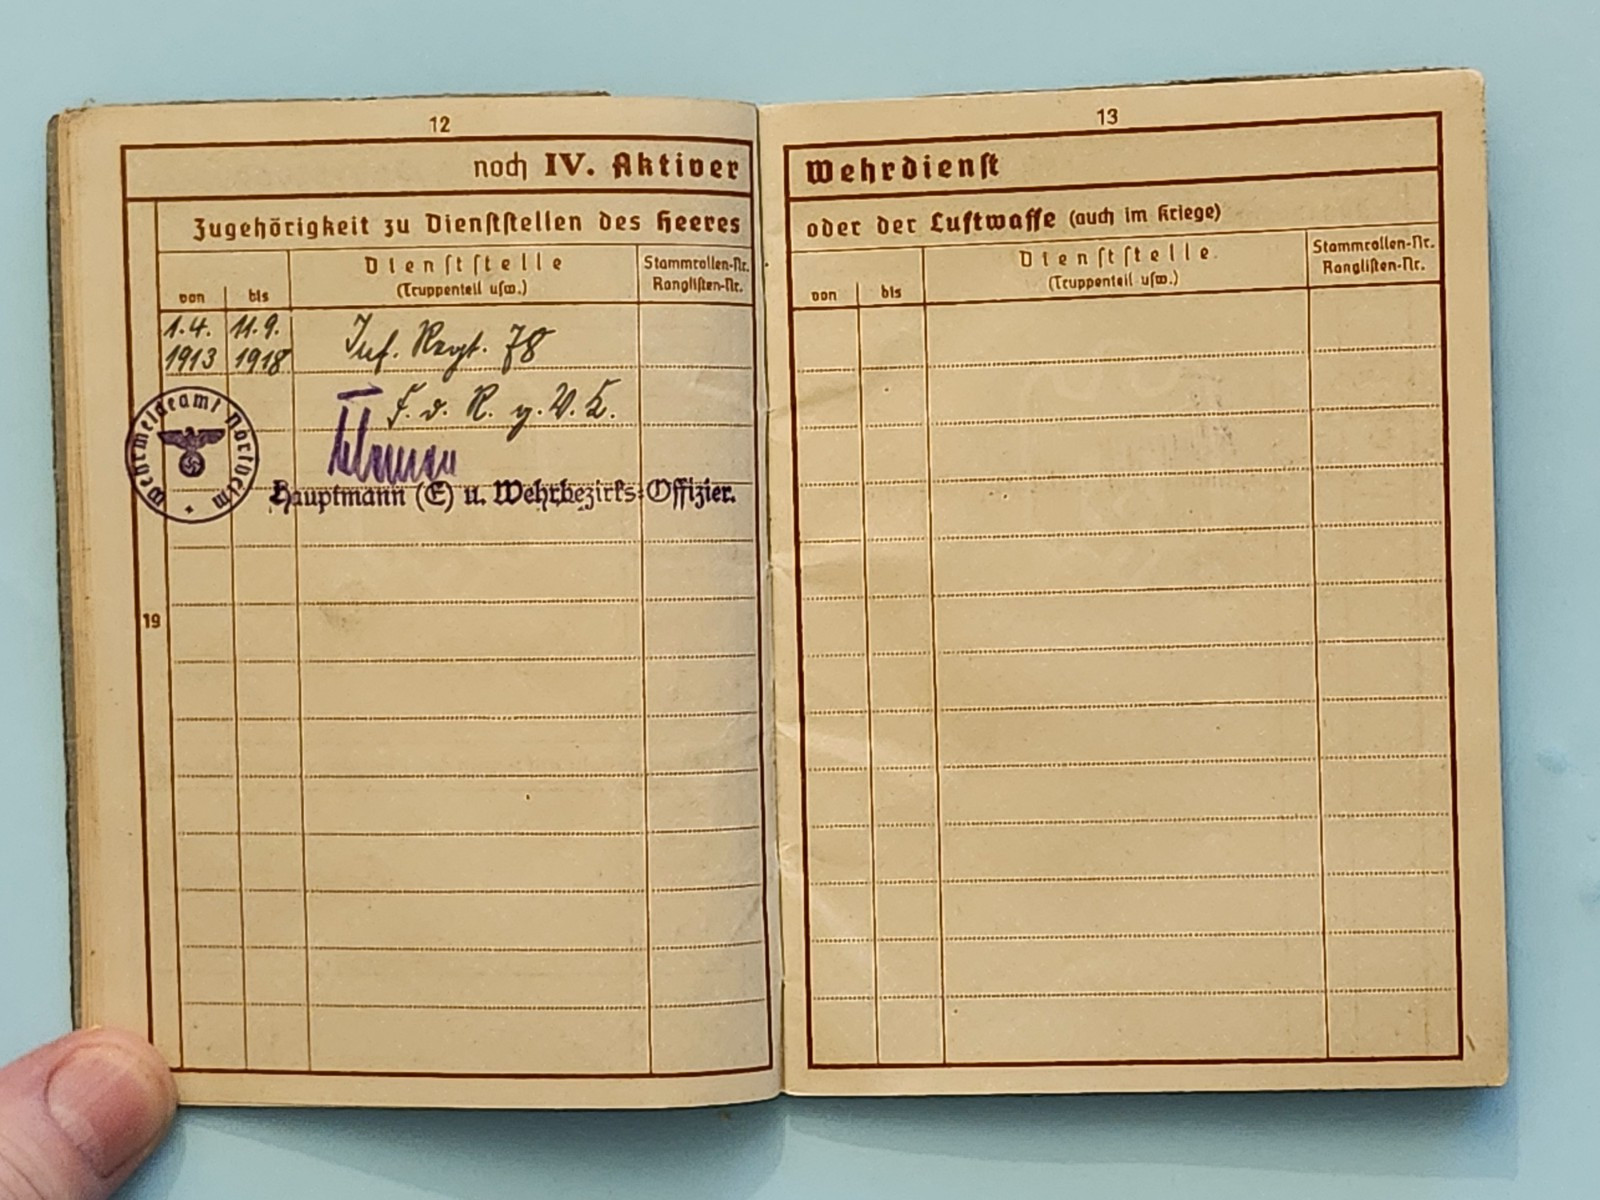 12
noch IV. Aktiver
Zugehörigkeit zu Dienststellen des Heeres
von
bis
Dienststelle
(Truppenteil usw.)
Stammrollen-Nr.
Ranglisten-Nr.
1.4.
1913
11.9.
1918
Inf. Regt. 78
F. d. R.
Wehrmeldeamt Northeim
Hauptmann (E) u. Wehrbezirks-Offizier.
19
13
Wehrdienst
oder der Luftwaffe (auch im Kriege)
von
bis
Dienststelle.
(Truppenteil usw.)
Stammrollen-Nr.
Ranglisten-Nr.